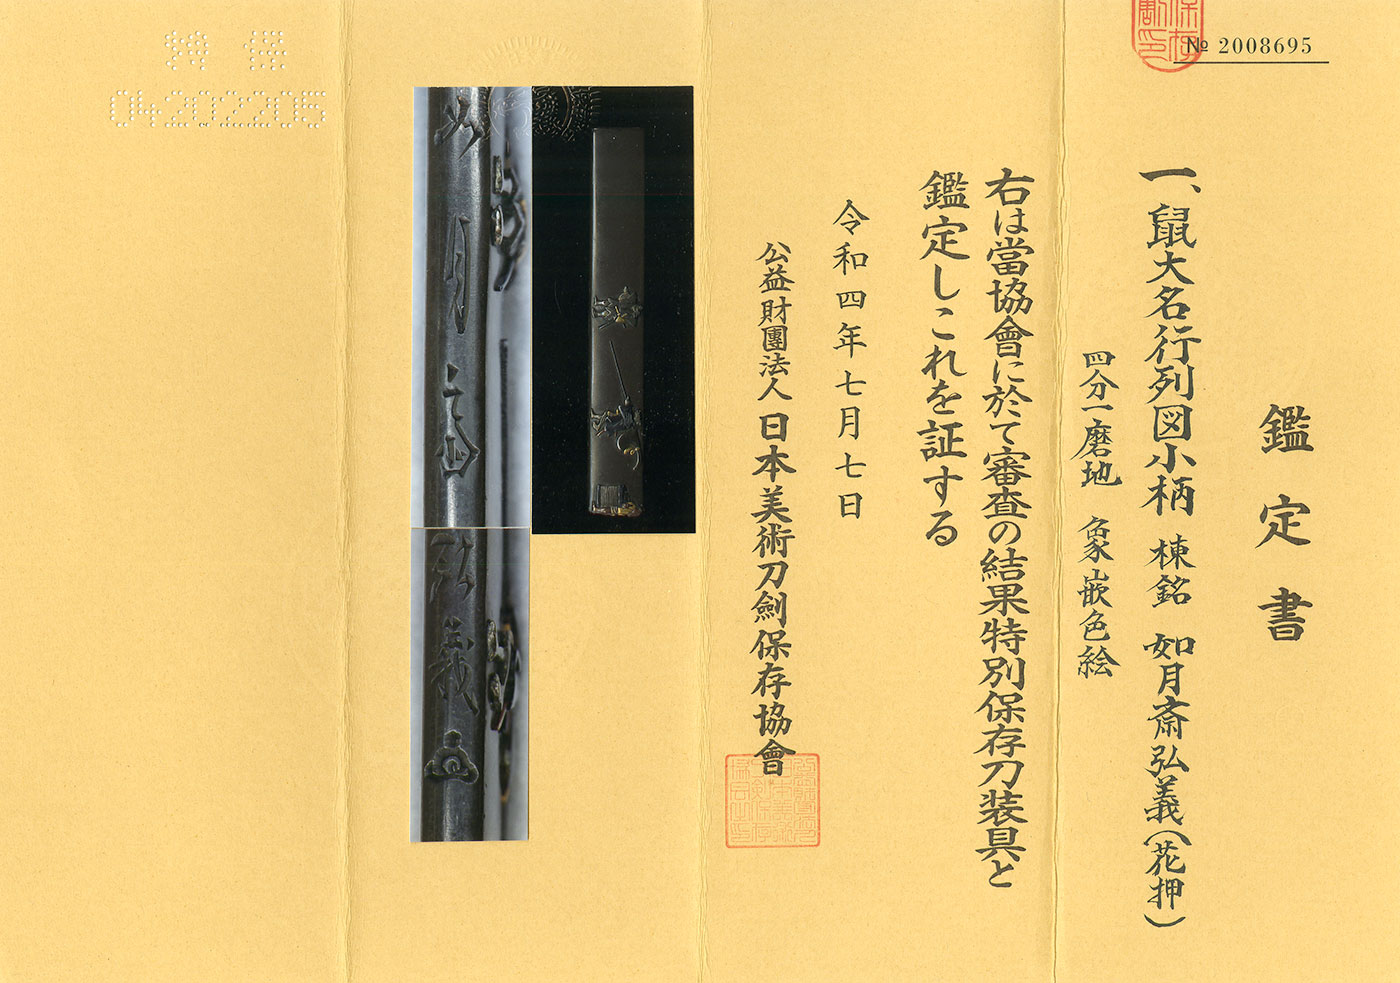 № 2008695
鑑定書
一、鼠大名行列図小柄 棟銘 如月斎弘義(花押)
四分一磨地 象嵌色絵
右は當協會に於て審査の結果特別保存刀装具と
鑑定しこれを証する
令和四年七月七日
公益財團法人 日本美術刀劍保存協會
如月斎
弘義
04202205